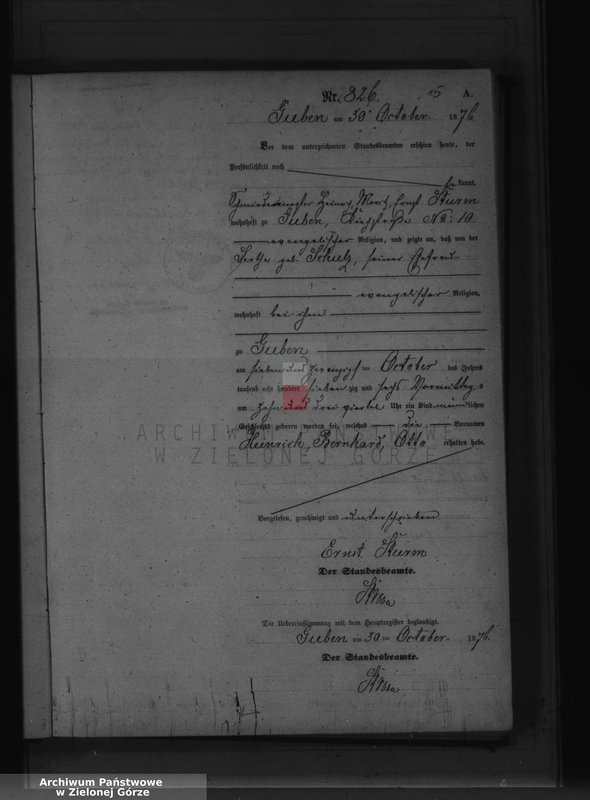 Nr. 826. 15 A.
Guben am 30. October. 1876.
Vor dem unterzeichneten Standesbeamten erschien heute, der
Persönlichkeit nach
kannt,
Schmiedemeister Heinrich, Moritz, Ernst Sturm
wohnhaft zu Guben, No: 10.
evangelischer Religion, und zeigte an, daß von der
geb. Schulz, seiner Ehefrau
evangelischer Religion,
wohnhaft bei ihm
zu Guben
am sieben und zwanzigsten October des Jahres
tausend acht hundert sieben zig und sechs Vormittags
um zehn und drei viertel Uhr ein Kind männlichen
Geschlechts geboren worden sei, welches die Vornamen
Heinrich Bernhard, Otto erhalten habe.
Vorgelesen, genehmigt und unterschrieben
Ernst Sturm
Der Standesbeamte.
Die Uebereinstimmung mit dem Hauptregister beglaubigt.
Guben am 30 ten October. 1876.
Der Standesbeamte.
ARCHIWUM PAŃSTWOWE
W ZIELONEJ GÓRZE
Archiwum Państwowe
w Zielonej Górze